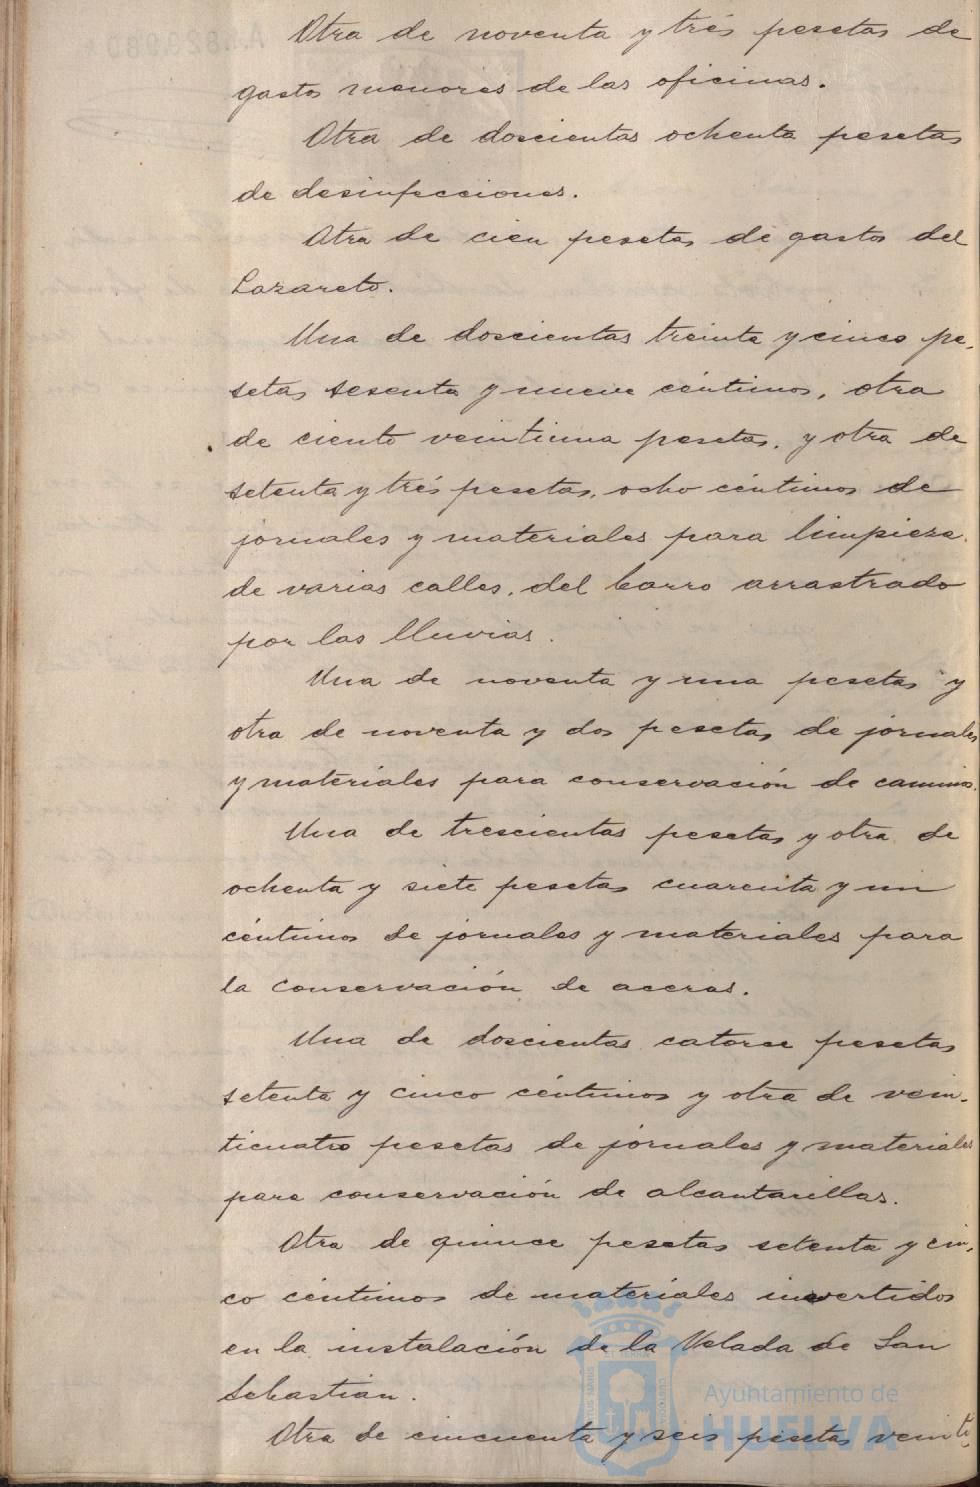 Otra de noventa y trés pesetas de
gastos menores de las oficinas.
Otra de doscientas ochenta pesetas
de desinfecciones.
Otra de cien pesetas de gastos del
Lazareto.
Una de doscientas treinta y cinco pe-
setas sesenta y nueve céntimos, otra
de ciento veintiuna pesetas, y otra de
setenta y trés pesetas, ocho céntimos de
jornales y materiales para limpieza
de varias calles, del barro arrastrado
por las lluvias.
Una de noventa y una pesetas y
otra de noventa y dos pesetas de jornales
y materiales para conservación de caminos.
Una de trescientas pesetas y otra de
ochenta y siete pesetas cuarenta y un
céntimos de jornales y materiales para
la conservación de aceras.
Una de doscientas catorce pesetas
setenta y cinco céntimos y otra de vein-
ticuatro pesetas de jornales y materiales
para conservación de alcantarillas.
Otra de quince pesetas setenta y cin-
co céntimos de materiales invertidos
en la instalación de la Velada de San
Sebastián.
Otra de cincuenta y seis pesetas veinti-
Ayuntamiento de
HUELVA